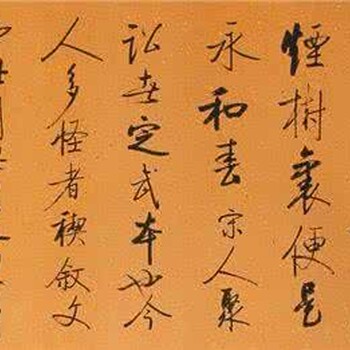 煙樹裏便是
永和春宋人聚
訟安定武本也今
人多怪者稧叙文